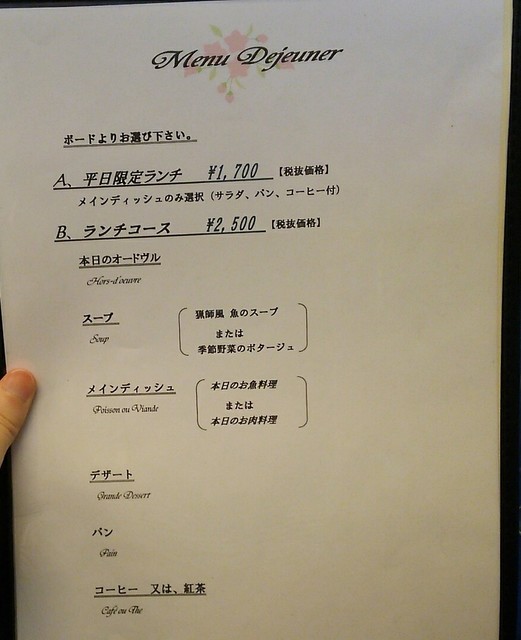 Menu Dejeuner
ボードよりお選び下さい。
A、平日限定ランチ ¥1,700 【税抜価格】
メインディッシュのみ選択（サラダ、パン、コーヒー付）
B、ランチコース ¥2,500 【税抜価格】
本日のオードヴル
Hors-d'oeuvre
スープ
Soup
猟師風 魚のスープ
または
季節野菜のポタージュ
メインディッシュ
Poisson ou Viande
本日のお魚料理
または
本日のお肉料理
デザート
Grande Dessert
パン
Pain
コーヒー 又は、紅茶
Café ou The